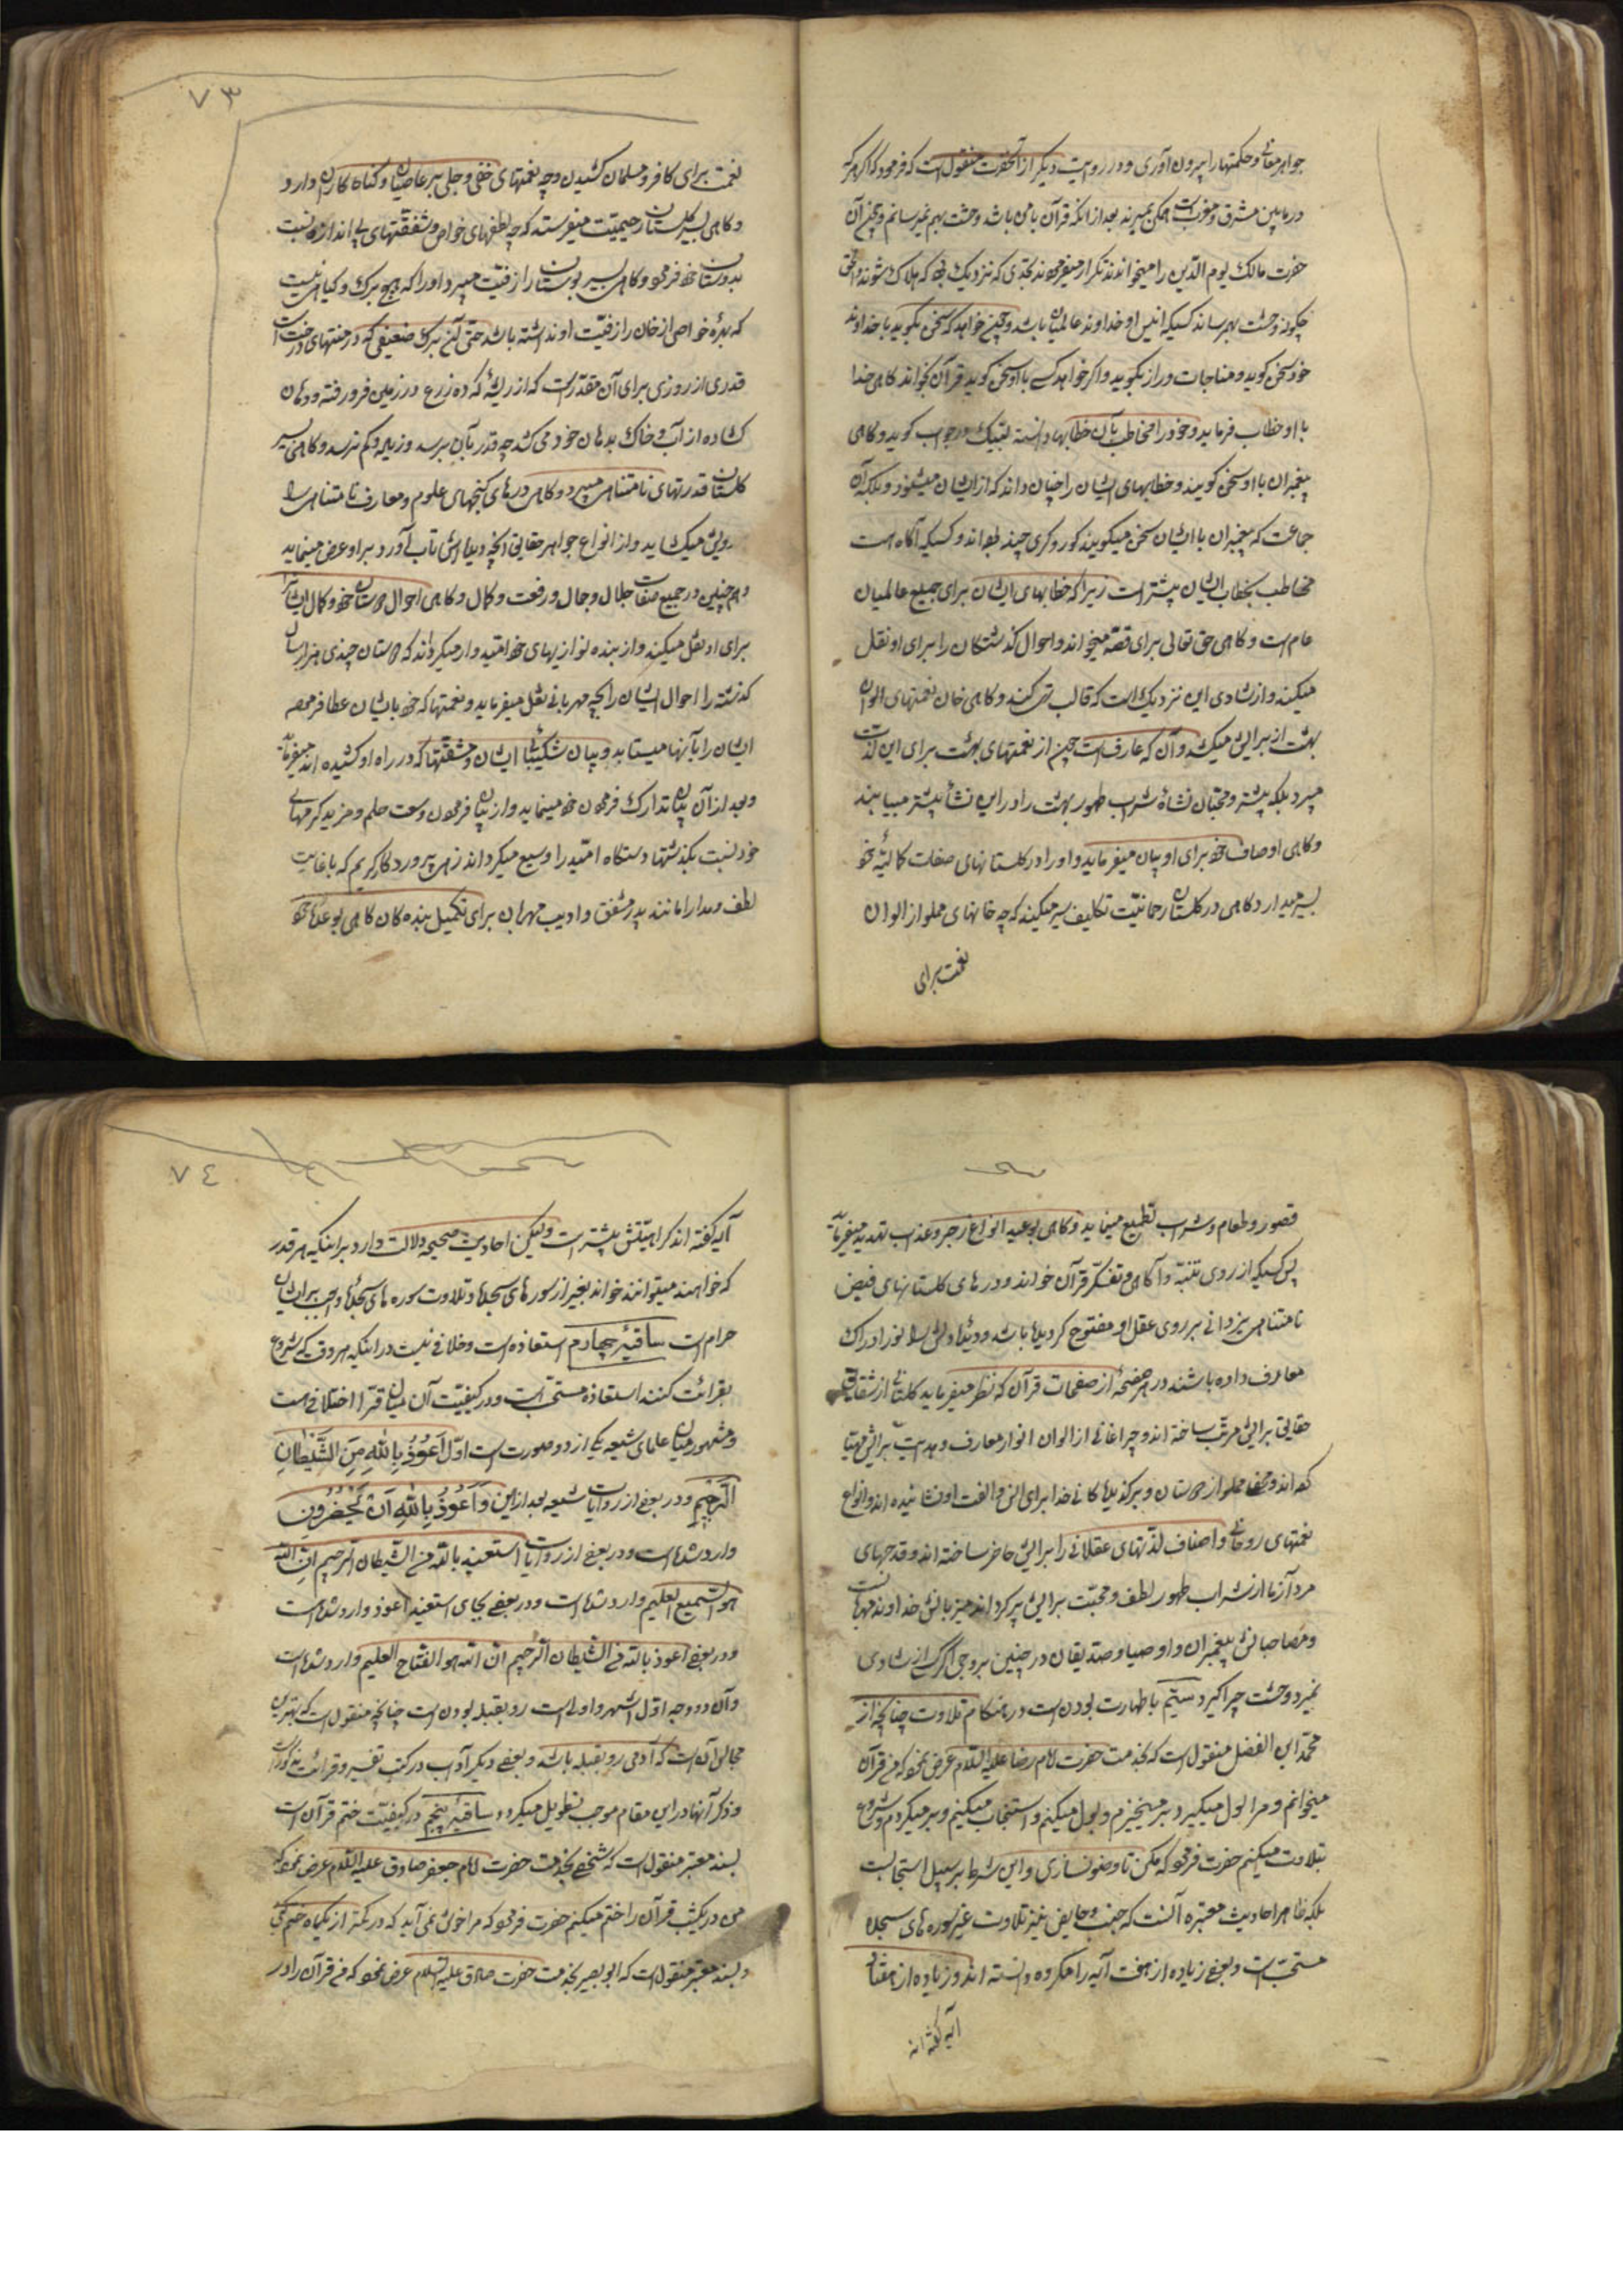 جواهر معانی و حکمتها را بیرون آوری و در روایت دیگر از آنحضرت منقول است که فرمود که اگر هر که
در مابین مشرق و مغرب است همگی بمیرند بعد از آنکه قرآن با من باشد وحشت بهم نمیرسانم و چون آن
حضرت مالک یوم الدین را میخواندند تکرار میفرمودند بحدی که نزدیک بود که هلاک شوند و الحق
چگونه وحشت بهم رساند کسیکه انیس او خداوند عالمیان باشد و چون خواهد که سخن بگوید با خداوند
خود سخن گوید و مناجات و راز بگوید و اگر خواهد کسی با او سخن گوید قرآن بخواند گاهی خدا
با او خطاب فرماید و خود را مخاطب بآن خطابها دانسته لبیک در جواب گوید و گاهی
پیغمبران با او سخن گویند و خطابهای ایشان را چنان داند که از ایشان میشنود و بلکه آن
جماعت که پیغمبران با ایشان سخن میگویند کور و کری چند بوده‌اند و کسیکه آگاه است
مخاطب بخطاب ایشان بیشتر است زیرا که خطابهای ایشان برای جمیع عالمیان
عام است و گاهی حق تعالی برای قصه میخواند و احوال گذشتگان را برای او نقل
میکند و از شادی این نزدیک است که قالب تهی کند و گاهی خوان نعمتهای الوان
بهشت از برایش میکشد و آن که عارفست چون از نعمتهای بهشت برای این لذت
میبرد بلکه بیشتر و محبان نشاهٔ شراب طهور بهشت را در این نشأ بیشتر مییابند
و گاهی اوصاف خود برای او بیان میفرماید و او را در گلستانهای صفات کمالیهٔ خود
بسیر میدارد گاهی در گلستان رحمانیت تکلیف سیر میکند که چه خانهای مملو از الوان
نعمت برای
۷۳
نعمت برای کافر و مسلمان کشیدن و چه نعمتهای خفی و جلی بر عاصیان و گناه‌کاران دارد
و گاهی بسیر گلستان رحیمیت میفرستد که چه لطفهای خواص و شفقتهای بی اندازه نسبت
بدوستان خود فرموده و گاهی بسیر بوستان رازقیت میبرد او را که هیچ برگ و گیاهی نیست
که بهرهٔ خواص از خوان رازقیت او نداشته باشد حتی آن برگ ضعیفی که در منتهای درخت است
قدری از روزی برای آن مقدر است که از ریشهٔ که ده زرع در زمین فرو رفته و دهان
گشاده از آب و خاک بدهان خود می کشد چه قدر بآن برسد و زیاد و کم نرسد و گاهی بسیر
گلستان قدرتهای نامتناهی میبرد و گاهی درهای گنجهای علوم و معارف نامتناهی را
رویش میگشاید و از انواع جواهر حقایق آنچه دیده‌اش تاب آورد بر او عرض مینماید
و همچنین در جمیع صفات جلال و جمال و رفعت و کمال و گاهی احوال دوستان خود و کمال ایشان را
برای او نقل میکند و از بنده نوازیهای خود امیدوار میگرداند که دوستان چندی هزار سال
گذشته را احوال ایشان را بچه مهربانی نقل میفرماید و نعمتها که خود بایشان عطا فرموده
ایشان را بآنها میستاید و بیان شکیبائی ایشان و مشقتها که در راه او کشیده اند میفرماید
و بعد از آن بیان تدارک فرمودن خود مینماید و از بیان فرمودن وسعت حلم و مزید کرمهای
خود نسبت بگذشتها دستگاه امید را وسیع میگرداند زهی پروردگار کریم که با غایت
لطف و مدارا مانند پدر مشفق و ادیب مهربان برای تکمیل بنده‌گان گاهی بوعدهای خود
قصور و طعام و شراب تطمیع مینماید و گاهی بوعید انواع زجر و عذاب تهدید میفرماید
پس کسیکه از روی تنبه و آگاهی و تفکر قرآن خواند و درهای گلستانهای فیض
نامتناهی یزدانی بر روی عقل او مفتوح گردیده باشد و دیدهٔ دلش را نور ادراک
معارف داده باشند در هر صفحهٔ از صفحات قرآن که نظر میفرماید گلستانی از شقایق
حقایق برایش مرتب ساخته اند و چراغانی از الوان انوار معارف و هدایت برایش مهیا
کرده‌اند و محفل مملو از دوستان و برگزیده‌گان خدا برای انس و الفت او نشانیده اند و انواع
نعمتهای روحانی و اصناف لذتهای عقلانی را برایش حاضر ساخته اند و قدحهای
مردآزما از شراب طهور لطف و محبت برایش پر کرده‌اند میزبانش خداوند مهربانست
و مصاحبانش پیغمبران و اوصیا و صدیقان در چنین بزوجی اگر کسی از شادی
نمیرد وحشت چرا گیرد سیّم با طهارت بودن است در هنگام تلاوت چنانچه از
محمد ابن الفضل منقول است که بخدمت حضرت امام رضا علیه السلام عرض نمود که من قرآن
میخوانم و مرا بول میگیرد بر میخیزم و بول میکنم و استنجا میکنم و بر میگردم و شروع
بتلاوت میکنم حضرت فرمود که مکن تا وضو نسازی و این شرط بر سبیل استحبابست
بلکه ظاهر احادیث معتبره آنست که جنب و حایض نیز تلاوت غیر سوره های سجده
مستحب است و بعضی زیاده از هفت آیه را مکروه دانسته اند و زیاده از هفتاد
آیه گفته اند
۷۴
آیه گفته اند کراهتش بیشتر است و لیکن احادیث صحیحه دلالت دارد بر اینکه هر قدر
که خواهند میتوانند خواند بغیر از سوره های سجده و تلاوت سوره های سجدهٔ واجب بر ایشان
حرام است ساقیهٔ چهارم استعاذه است و خلافی نیست در اینکه هر وقت که شروع
بقرائت کنند استعاذه مستحب است و در کیفیت آن میان قرّا اختلافی هست
و مشهور میان علمای شیعه یکی از دو صورت است اوّل اَعُوذُ بِاللهِ مِنَ الشَّیْطانِ
الرَّجِیمِ و در بعضی از روایات شیعه بعد از این وَ اَعُوذُ بِاللهِ اَنْ یَحْضُرُونِ
وارد شده است و در بعضی از روایات استعیذ بالله من الشیطان الرجیم ان الله
هو السمیع العلیم وارد شده است و در بعضی بجای استعیذ اعوذ وارد شده است
و در بعضی اعوذ بالله من الشیطان الرجیم ان الله هو الفتاح العلیم وارد شده است
و آن دو وجه اوّل اشهر و اولی است رو بقبله بودن است چنانچه منقول است که بهترین
مجالس آن است که آدمی رو بقبله باشد و بعضی دیگر آداب در کتب تفسیر و قرائت مذکور است
و ذکر آنها در این مقام موجب تطویل میگردد ساقیهٔ پنجم در کیفیت ختم قرآن است
بسند معتبر منقول است که شخصی بخدمت حضرت امام جعفر صادق علیه السلام عرض نمود که
من در یکشب قرآن را ختم میکنم حضرت فرمود که مرا خوش نمی آید که در کمتر از یکماه ختم کنی
و بسند معتبر منقول است که ابو بصیر بخدمت حضرت صادق علیه السلام عرض نمود که من قرآن را در